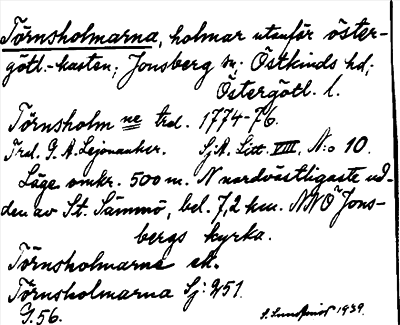 Törnsholmarna, holmar utanför öster-
götl.-kusten; Jonsberg sn; Östkinds hd;
Östergötl. l.
Törnsholm ne trd. 1774-76.
Trd. G. A. Lejonancker. Sj.A. Litt. VIII. N:o 10.
Läge omkr. 500 m. N nordvästligaste ud-
den av St. Sämmö, bel. 7,2 km. NNO Jons-
bergs kyrka.
Törnsholmarne ek.
Törnsholmarna Sj:251
G.56. 1939.